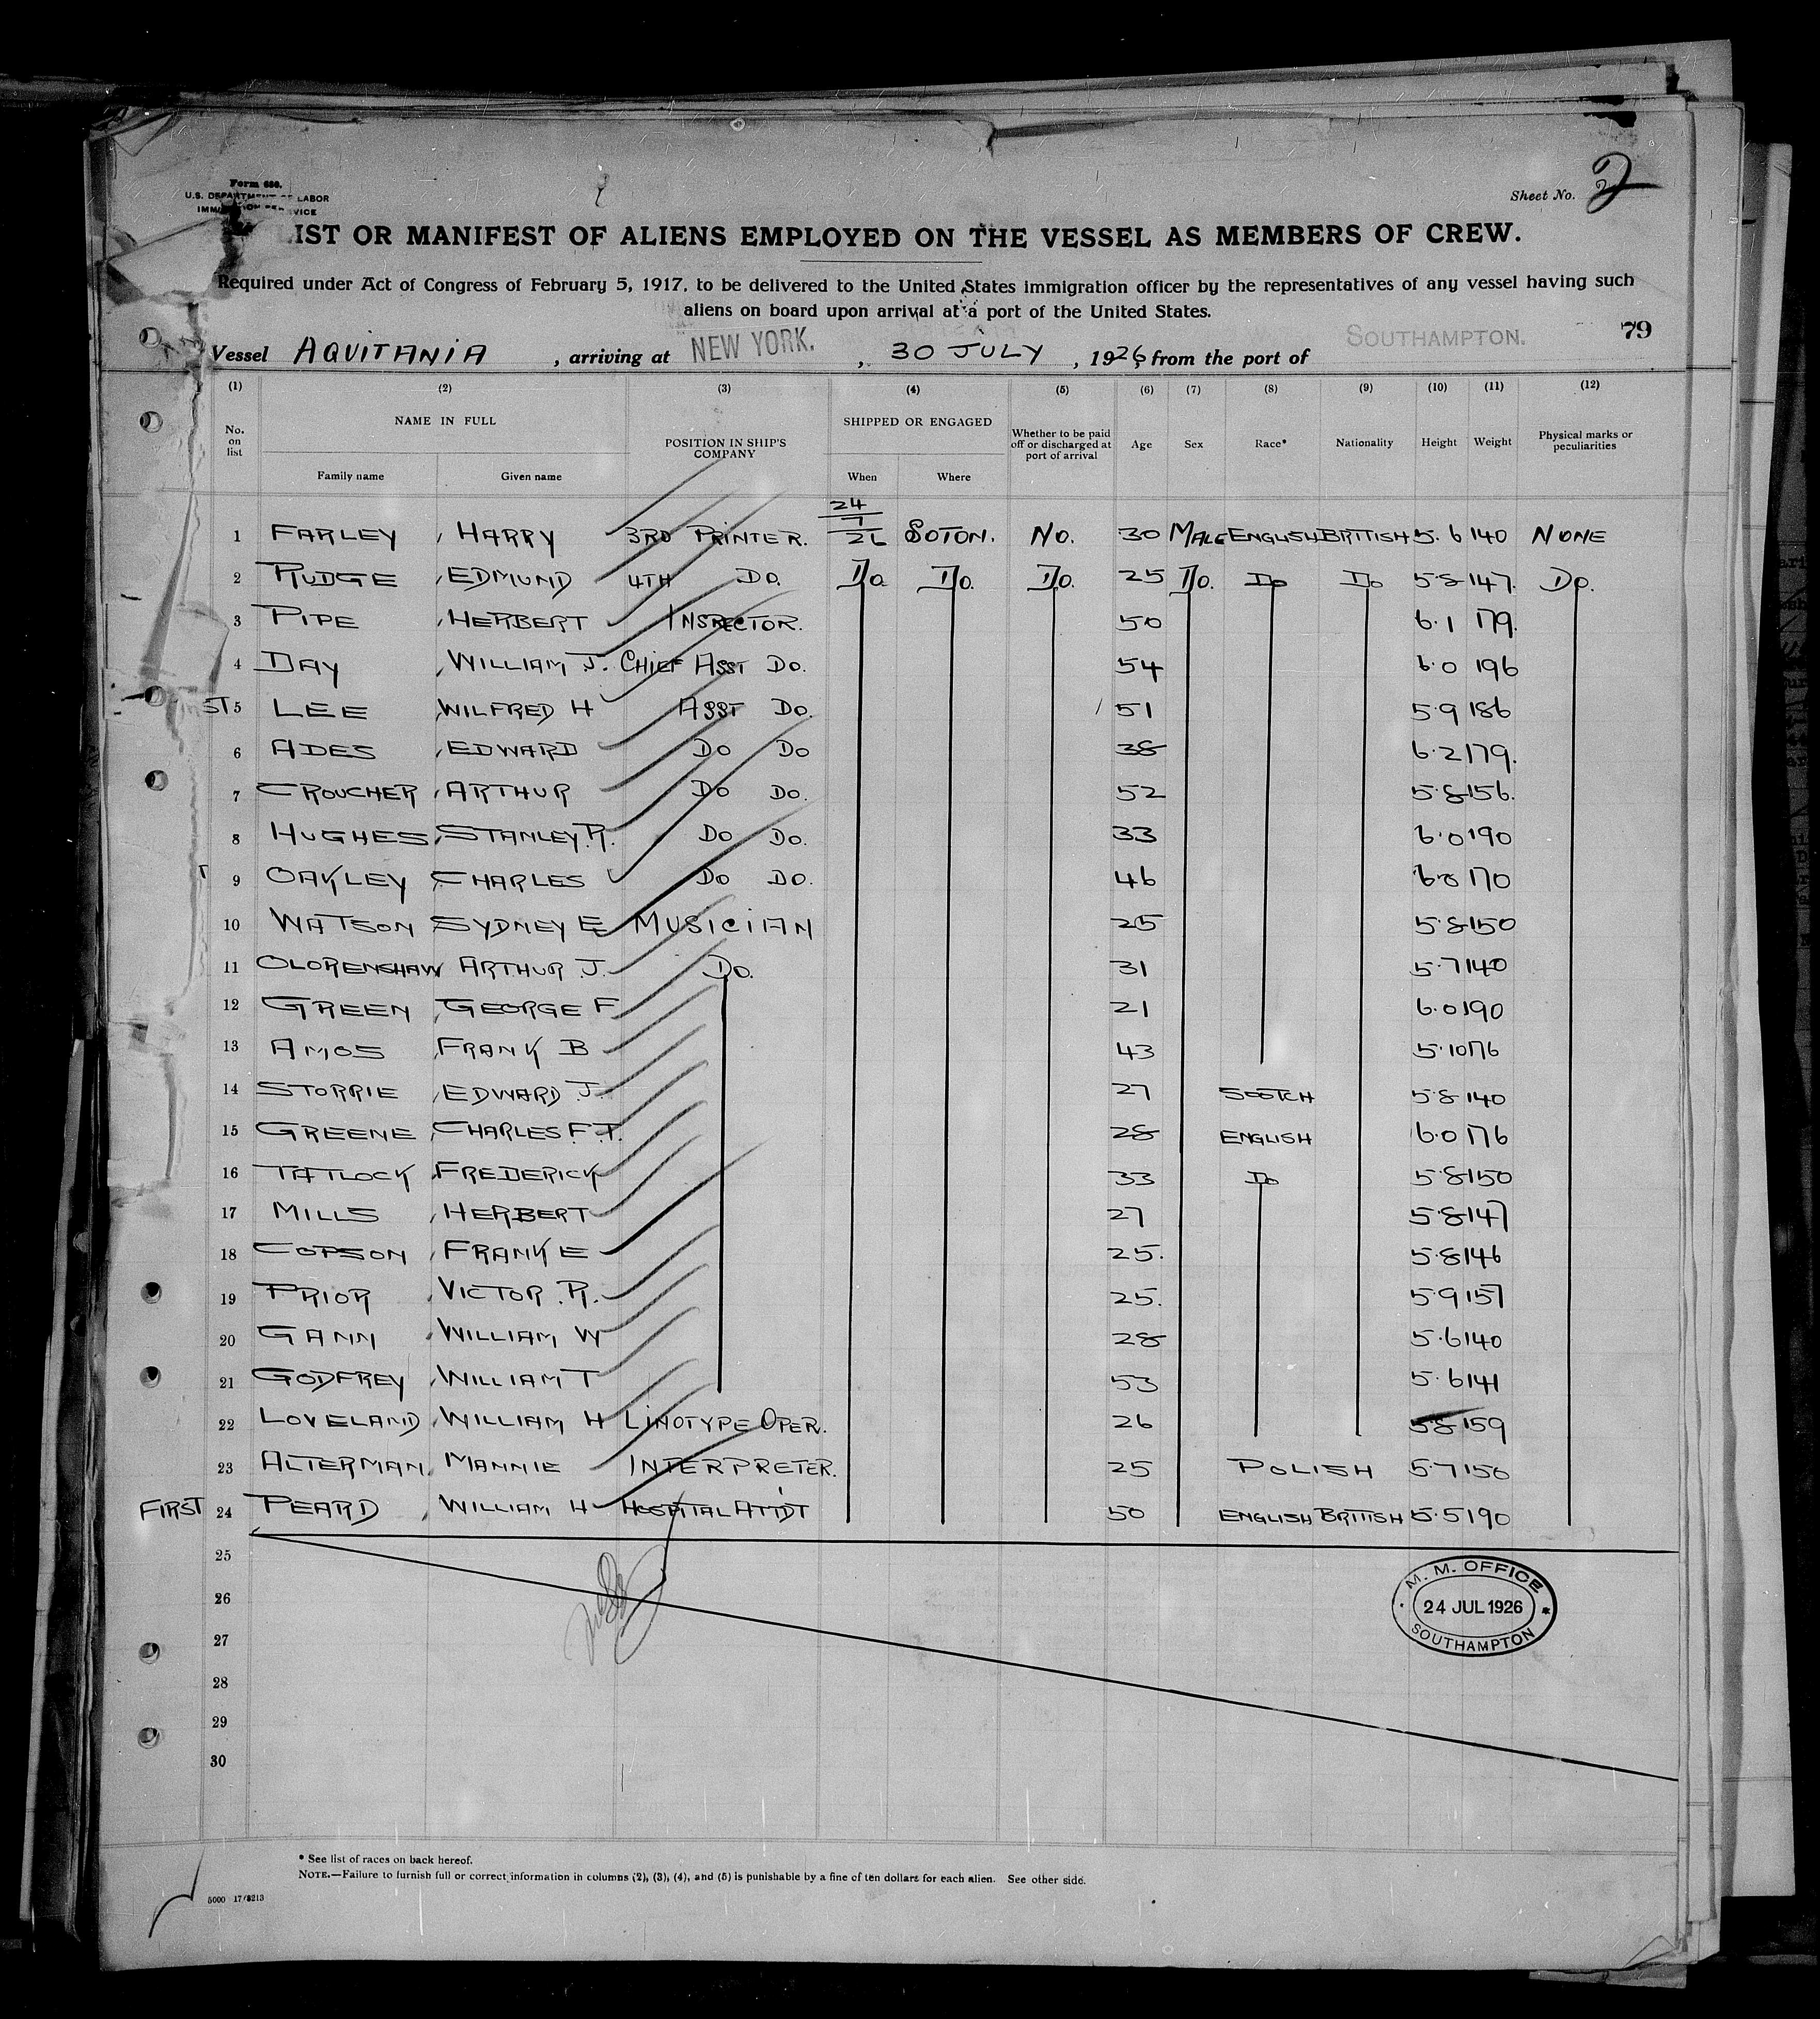 Form 680.
U.S. DEPARTMENT OF LABOR
IMMIGRATION SERVICE
Sheet No. 2
LIST OR MANIFEST OF ALIENS EMPLOYED ON THE VESSEL AS MEMBERS OF CREW.
Required under Act of Congress of February 5, 1917, to be delivered to the United States immigration officer by the representatives of any vessel having such
aliens on board upon arrival at a port of the United States.
79
Vessel AQUITANIA , arriving at NEW YORK. , 30 JULY , 1926, from the port of SOUTHAMPTON.
(1) (2) (3) (4) (5) (6) (7) (8) (9) (10) (11) (12)
No. on list NAME IN FULL POSITION IN SHIP'S COMPANY SHIPPED OR ENGAGED Whether to be paid off or discharged at port of arrival Age Sex Race* Nationality Height Weight Physical marks or peculiarities
Family name Given name When Where
1 FARLEY , HARRY 3RD PRINTER. 24/7/26 SOTON. NO. 30 MALE ENGLISH BRITISH 5.6 140 NONE
2 RUDGE , EDMUND 4TH DO. DO. DO. DO. 25 DO. DO DO 5.8 147. DO.
3 PIPE , HERBERT INSPECTOR. 50 6.1 179.
4 DAY , WILLIAM J. CHIEF ASST DO. 54 6.0 196
ST 5 LEE , WILFRED H ASST DO. 51 5.9 186
6 ADES , EDWARD DO DO 38 6.2 179.
7 CROUCHER , ARTHUR DO DO. 52 5.8 156.
8 HUGHES , STANLEY R. DO DO. 33 6.0 190
9 OAKLEY , CHARLES DO DO. 46 170
10 WATSON SYDNEY E MUSICIAN 25 5.8 150
11 OLORENSHAW ARTHUR J. DO. 31 5.7 140
12 GREEN , GEORGE F 21 6.0 190
13 AMOS , FRANK B 43 5.10 176
14 STORRIE , EDWARD J. 27 SCOTCH 5.8 140
15 GREENE , CHARLES F.T. 28 ENGLISH 6.0 176
16 TATLOCK , FREDERICK 33 DO 5.8 150
17 MILLS , HERBERT 27 5.8 147
18 COPSON , FRANK E 25. 5.8 146
19 PRIOR , VICTOR .R. 25. 5.9 157
20 GANN , WILLIAM W 28 5.6 140
21 GODFREY , WILLIAM T 53 5.6 141
22 LOVELAND , WILLIAM H LINOTYPE OPER. 26 5.8 159
23 ALTERMAN , MANNIE INTERPRETER. 25 POLISH 5.7 150
FIRST 24 PEARD , WILLIAM H HOSPITAL ATTDT 50 ENGLISH BRITISH 5.5 190
25
26
27
28
29
30
M. M. OFFICE
24 JUL 1926
SOUTHAMPTON
* See list of races on back hereof.
NOTE.—Failure to furnish full or correct information in columns (2), (3), (4), and (5) is punishable by a fine of ten dollars for each alien. See other side.
5000 17/8213